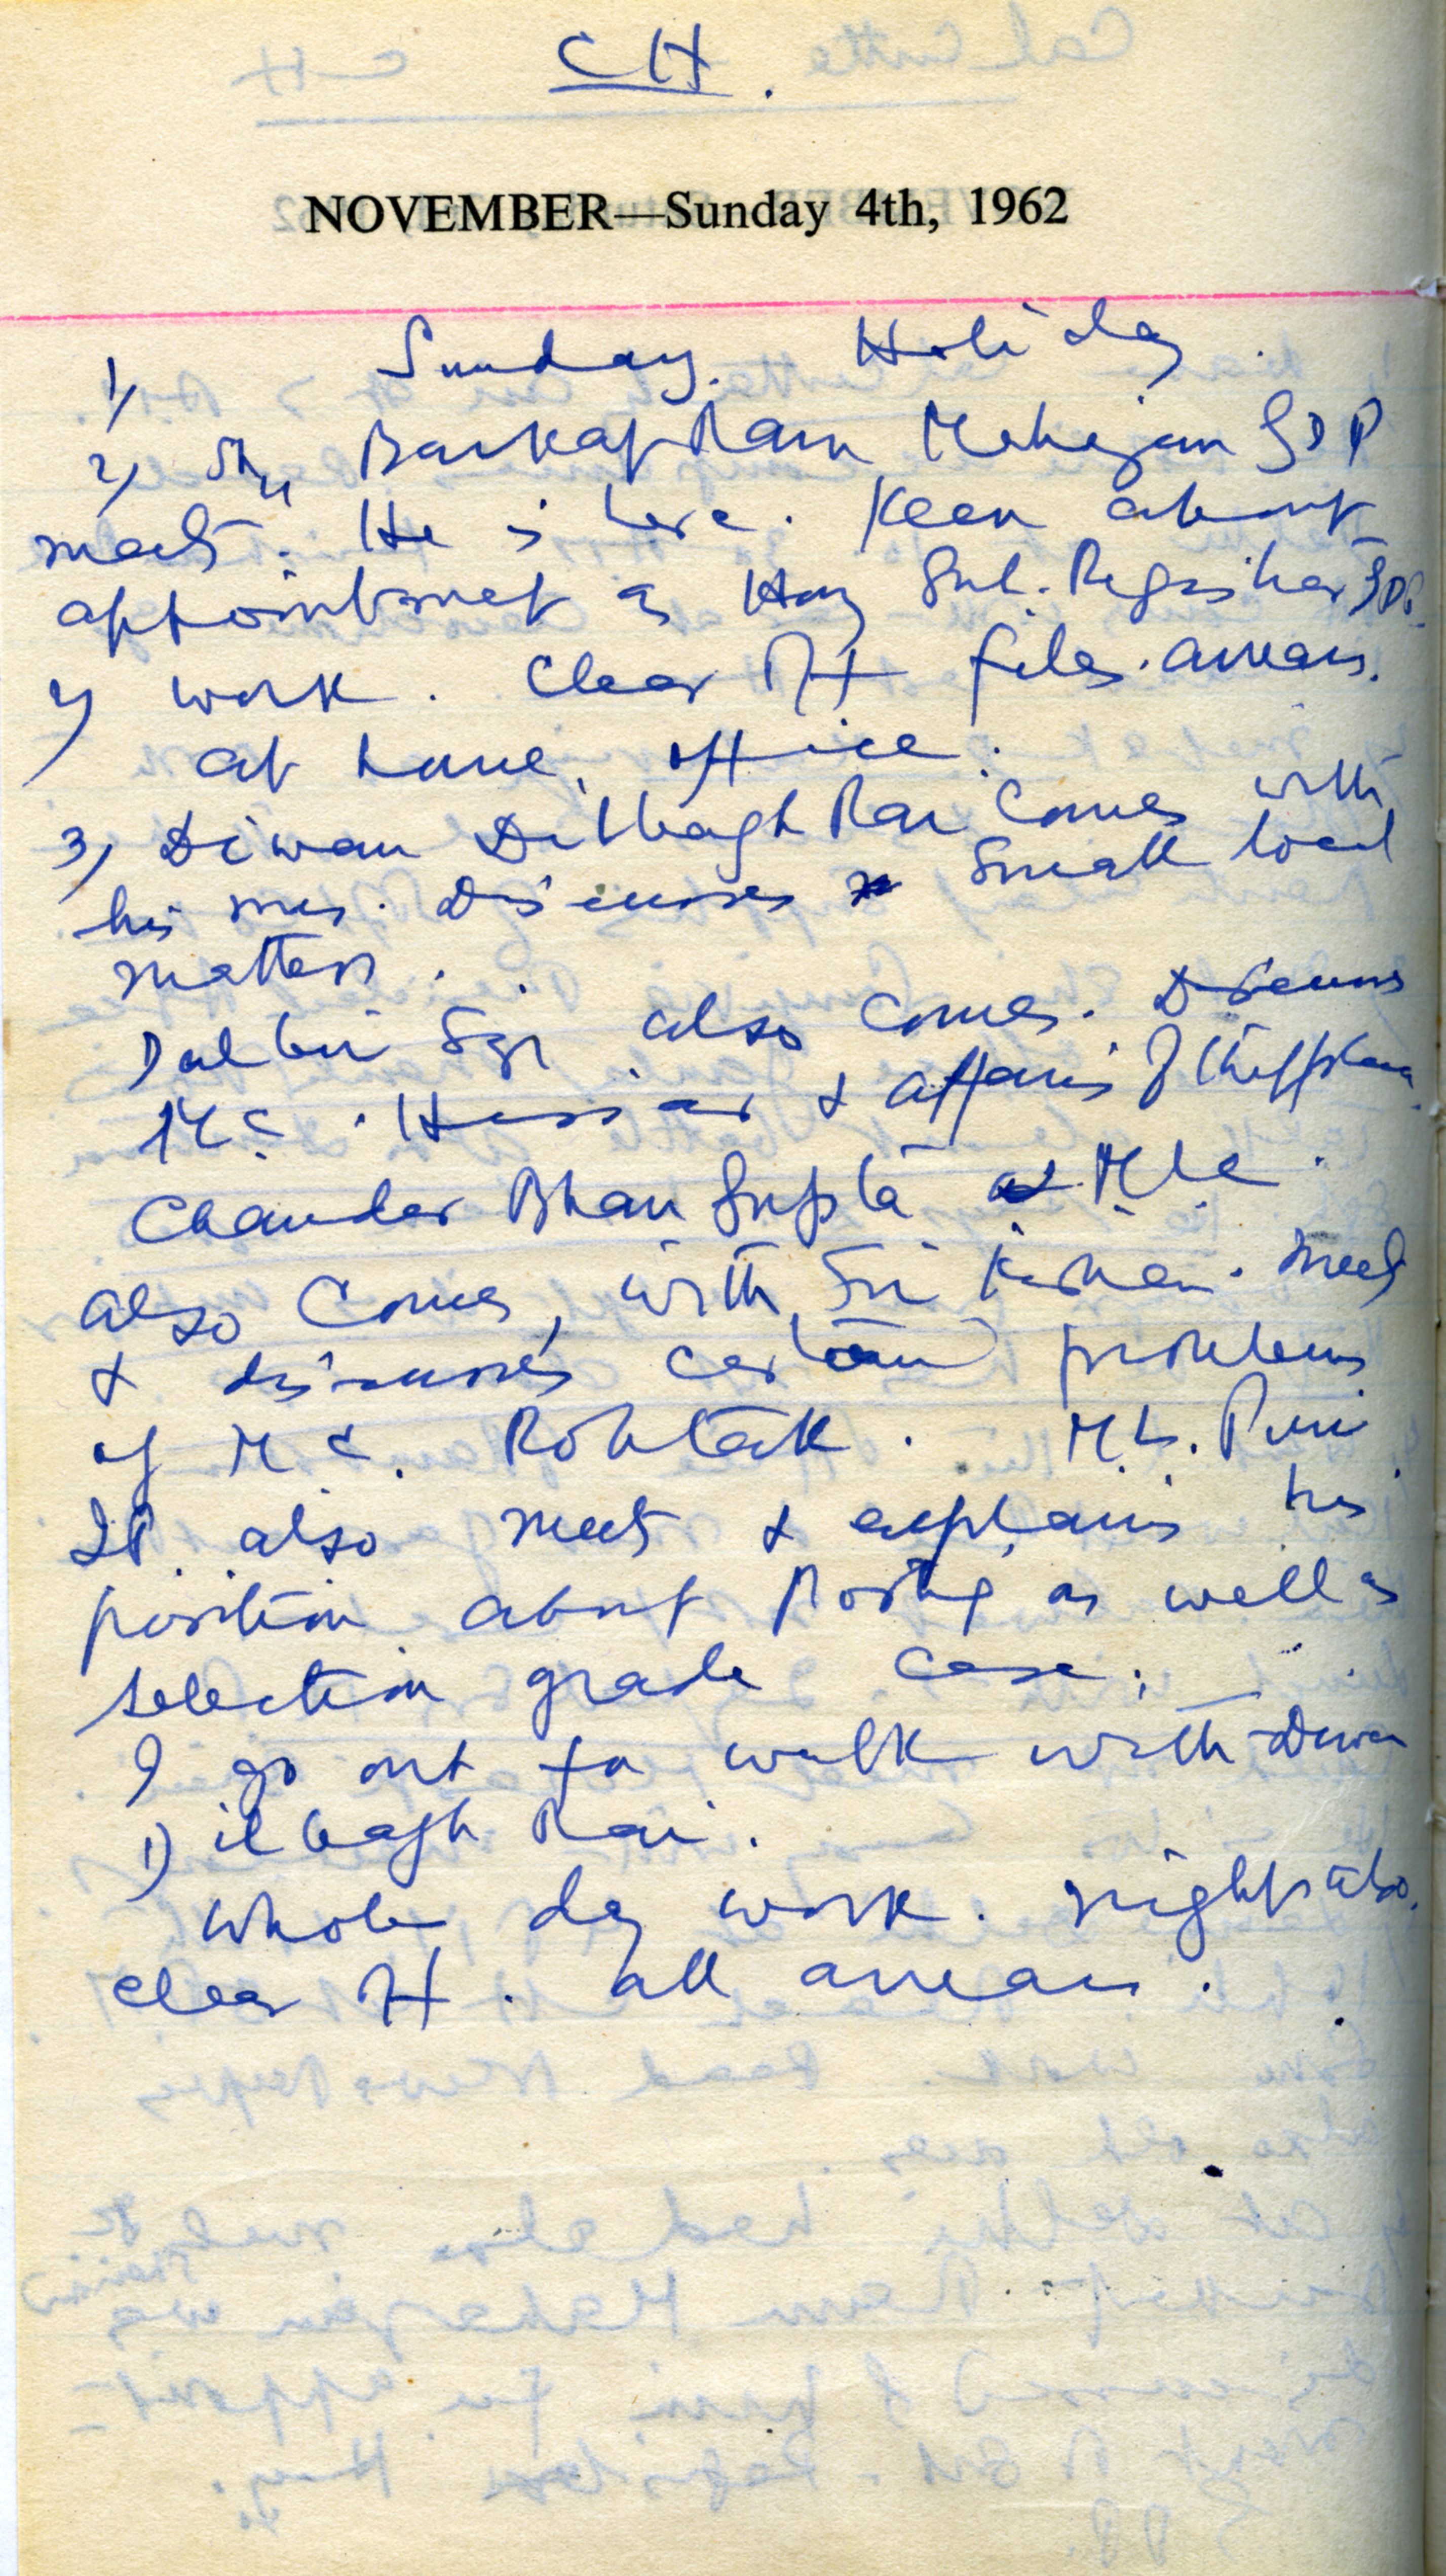 CH.
NOVEMBER—Sunday 4th, 1962
1) Sunday. Holiday.
2) Sh. Barkat Ram Mahajan GDP
meets. He is here. Keen about
appointment as Hony Sub. Registrar GDP.
work. Clear files. arrears.
at home. office.
3) Diwan Dilbagh Rai comes with
his Discusses small local
matters.
Dalbir Sgr also comes. Discuss
M.C. Hissar & affairs of
Chander Bhan Gupta M.L.C.
also comes, with Sri Kishen. meet
& discusses certain problems
of M.C. Rohtak. M.L. Puri
also meets & explains his
position about posting as well as
selection grade case.
I go out to walk with Diwan
Dilbagh Rai.
Whole day work. night also.
clear all arrears.